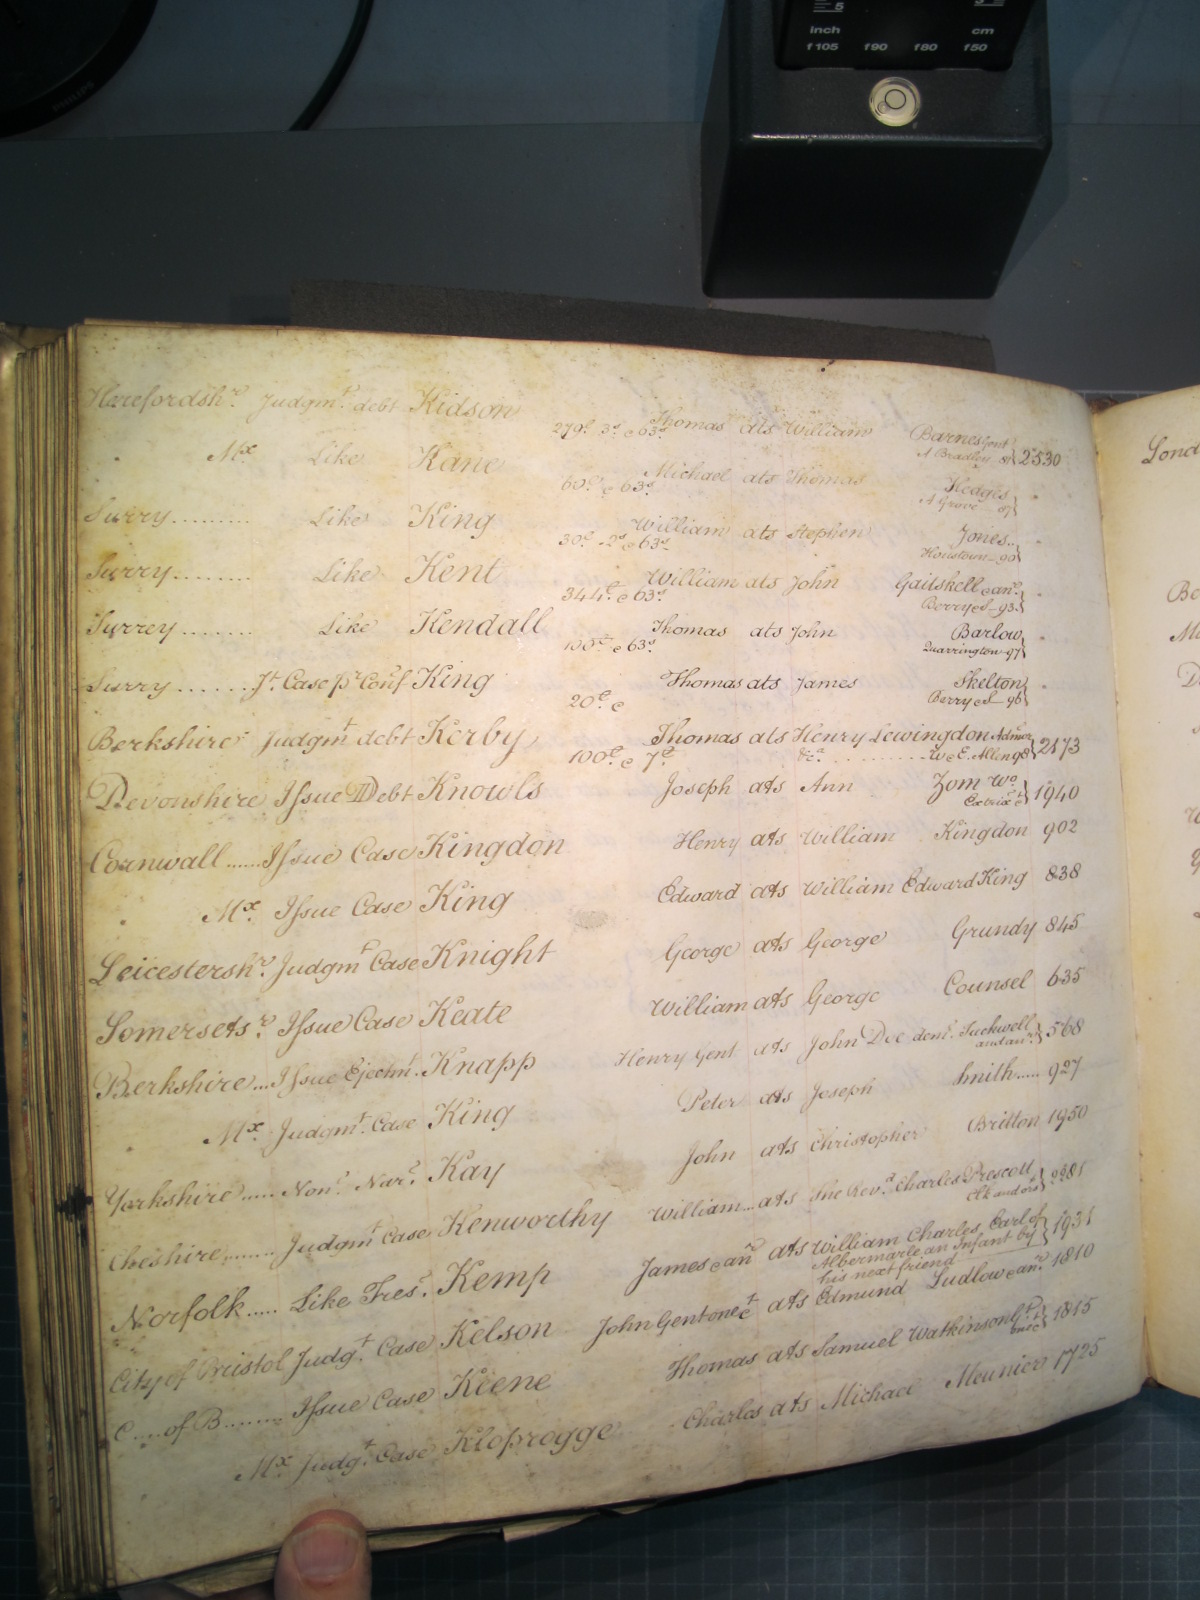 inch cm
f105 f90 f80 f50
PHILIPS
Herefordshre. Judgmt. debt Kidson 279£. 3s. e 63s. Thomas ats William Barnes Gent
A Bradley 81 } 2530
Mx. Like Kane 60£. e 63s. Michael ats Thomas Hodges
A Grove 87 } "
Surry......... Like King 30£. 2s. e 63s. William ats Stephen Jones..
Houstoun 90 } "
Surry........ Like Kent 344£. e 63s. William ats John Gaitskell e anr.
Berry et 93 } "
Surrey....... Like Kendall 100£. e 63s. Thomas ats John Barlow
Quarrington 97 } "
Surry......Jt. Case pr Conf King 20£. e Thomas ats James Skelton
Berry et 96 } "
Berkshire Judgmt debt Kerby 100£. e 7£. Thomas ats Henry Lewingdon Admor
&c. ......... W e E. Allen 98 } 2173
Devonshire Issue Debt Knowls Joseph ats Ann Zom Wo.
Extrix &c } 1940
Cornwall......Issue Case Kingdon Henry ats William Kingdon 902
Mx. Issue Case King Edward ats William Edward King 838
Leicestershre. Judgmt Case Knight George ats George Grundy 845
Somersetsr. Issue Case Keate William ats George Counsel 635
Berkshire...Issue Ejectmt. Knapp Henry Gent ats John Doe demt. Tuckwell
and anr. } 568
Mx. Judgmt. Case King Peter ats Joseph Smith..... 927
Yorkshire..... Nonr. Narr. Kay John ats Christopher Britton 1950
Cheshire,....... Judgmt Case Kenworthy William...ats The Revd. Charles Prescott
Clk and ors } 2281
Norfolk..... Like Tres. Kemp James e anr ats William Charles Earl of
Albermarle an Infant by
his next friend } 1931
City of Bristol Judgt. Case Kelson John Gent one &c ats Edmund Ludlow e anr. 1810
C....of B........ Issue Case Keene Thomas ats Samuel Watkinson Gt
one &c } 1815
Mx. Judgt. Case Kloprogge Charles ats Michael Meunier 1725